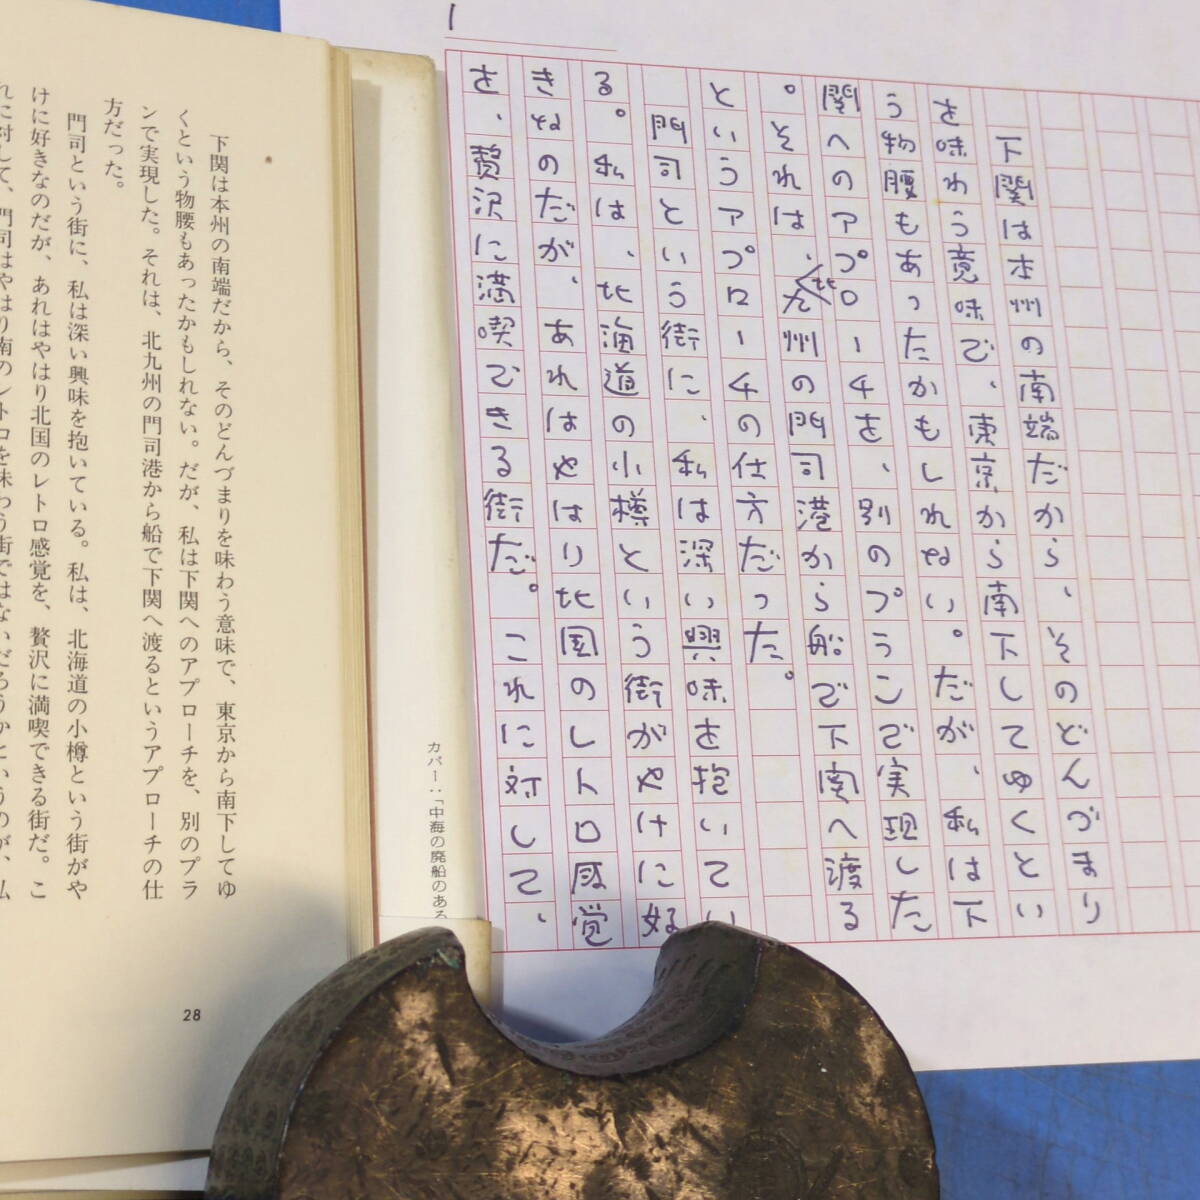 1
下関は本州の南端だから、そのどんづまり
を味わう意味で、東京から南下してゆくとい
う物腰もあったかもしれない。だが、私は下
関へのアプローチを、別のプランで実現した
。それは、北九州の門司港から船で下関へ渡る
というアプローチの仕方だった。
門司という街に、私は深い興味を抱いてい
る。私は、北海道の小樽という街がやけに好
きなのだが、あれはやはり北国のレトロ感覚
を、贅沢に満喫できる街だ。これに対して、
下関は本州の南端だから、そのどんづまりを味わう意味で、東京から南下してゆ
くという物腰もあったかもしれない。だが、私は下関へのアプローチを、別のプラ
ンで実現した。それは、北九州の門司港から船で下関へ渡るというアプローチの仕
方だった。
門司という街に、私は深い興味を抱いている。私は、北海道の小樽という街がや
けに好きなのだが、あれはやはり北国のレトロ感覚を、贅沢に満喫できる街だ。こ
れに対して、門司はやはり南のレトロを味わう街ではないだろうかというのが、私
28
カバー：「中海の廃船のある